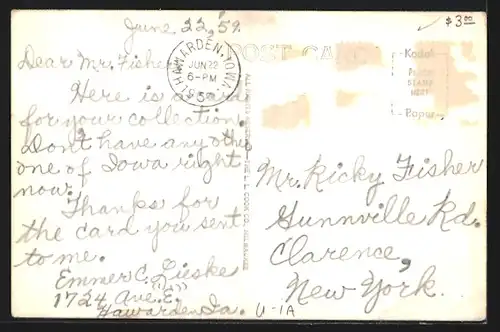 June 22, 59.
$3.00
Dear Mr. Fisher
Here is a card
for your collection.
Don't have any other
one of Iowa right
now.
Thanks for
the card you sent
to me.
Emmer C. Lieske
1724 Ave. "E"
Hawarden Ia.
HAWARDEN, IOWA
JUN 22
6-PM
POST CARD
Kodak
PLACE
STAMP
HERE
L. L. COOK CO., MILWAUKEE
Mr. Ricky Fisher
Gunnville Rd.
Clarence,
New York.
U-1A